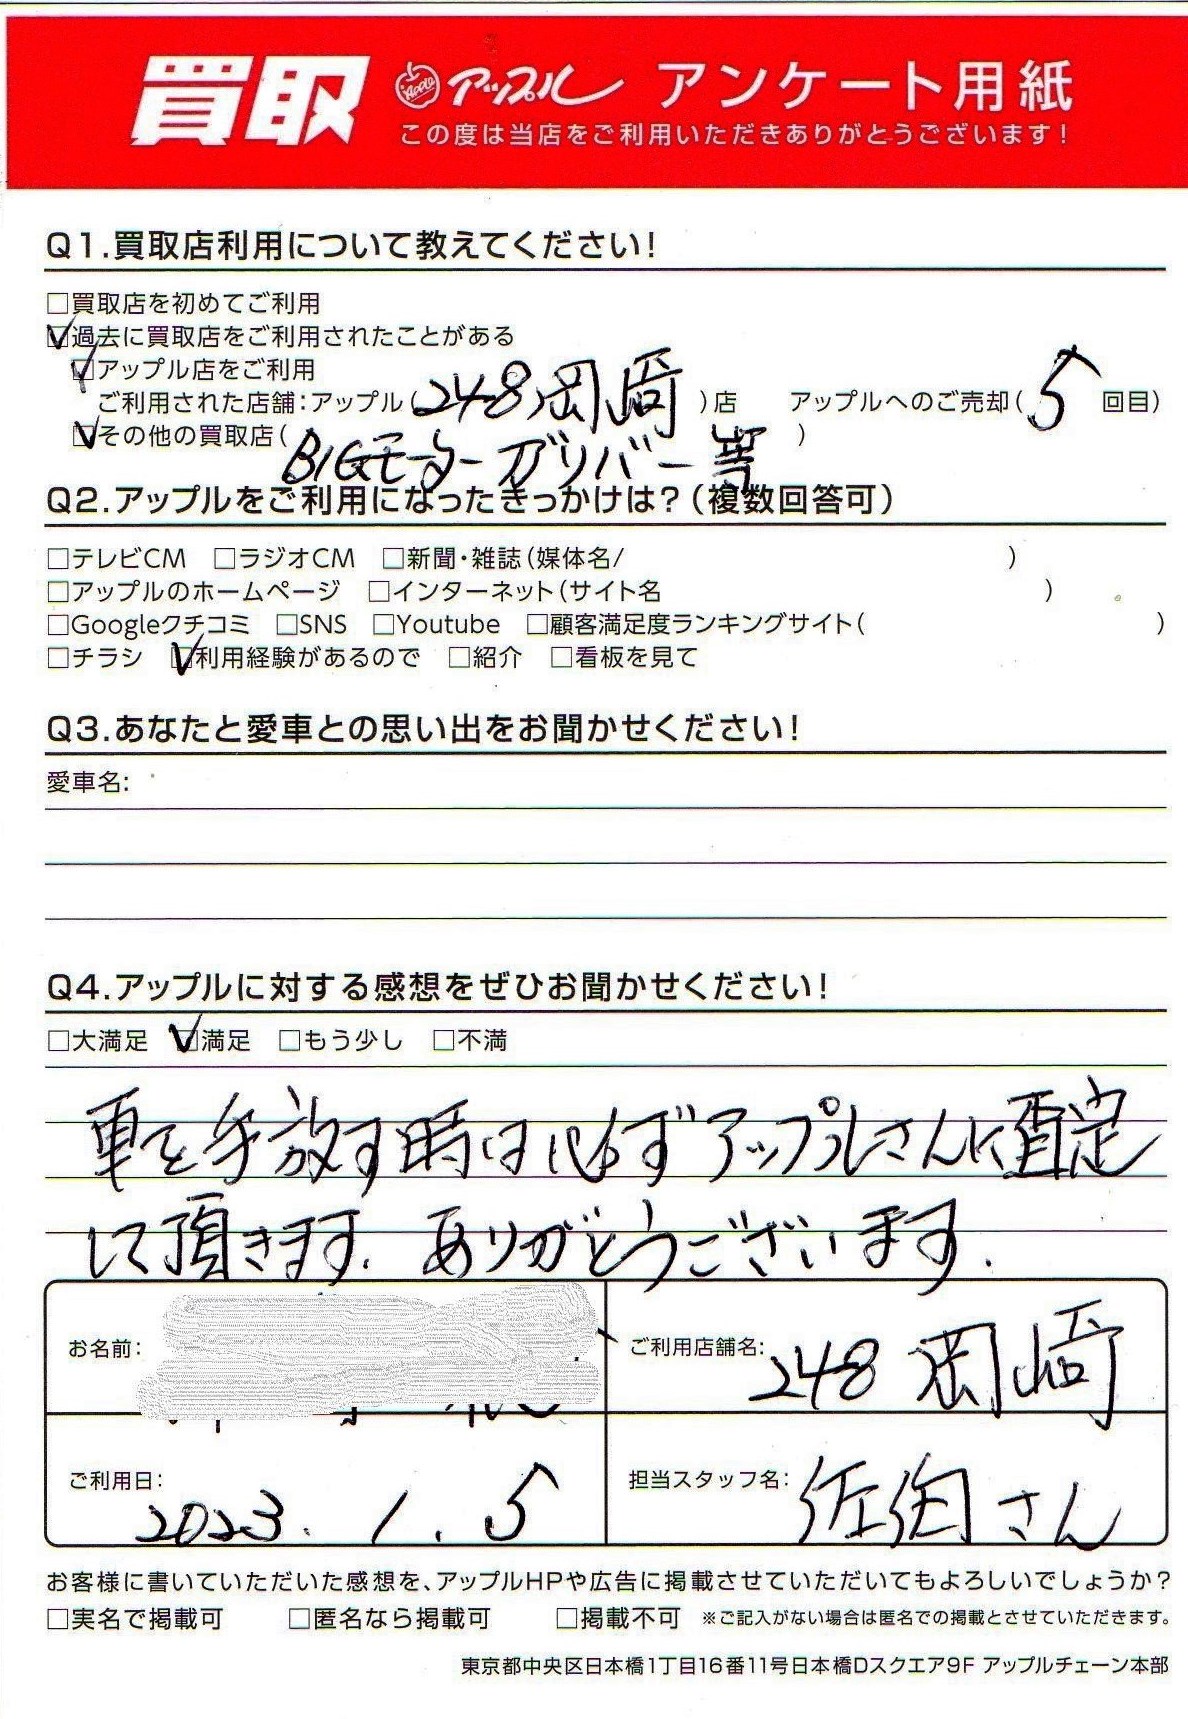 買取 Apple アップル アンケート用紙
この度は当店をご利用いただきありがとうございます!
Q1.買取店利用について教えてください!
□買取店を初めてご利用
☑過去に買取店をご利用されたことがある
☑アップル店をご利用
ご利用された店舗:アップル(248岡崎)店 アップルへのご売却(5回目)
☑その他の買取店(BIGモーターガリバー等)
Q2.アップルをご利用になったきっかけは?(複数回答可)
□テレビCM □ラジオCM □新聞・雑誌(媒体名/ )
□アップルのホームページ □インターネット(サイト名 )
□Googleクチコミ □SNS □Youtube □顧客満足度ランキングサイト( )
□チラシ ☑利用経験があるので □紹介 □看板を見て
Q3.あなたと愛車との思い出をお聞かせください!
愛車名:
Q4.アップルに対する感想をぜひお聞かせください!
□大満足 ☑満足 □もう少し □不満
車を手放す時は必ずアップルさんに査定
して頂きます. ありがとうございます.
お名前: ご利用店舗名: 248 岡崎
ご利用日: 2023. 1. 5 担当スタッフ名: 佐伯さん
お客様に書いていただいた感想を、アップルHPや広告に掲載させていただいてもよろしいでしょうか?
□実名で掲載可 □匿名なら掲載可 □掲載不可 ※ご記入がない場合は匿名での掲載とさせていただきます。
東京都中央区日本橋1丁目16番11号日本橋Dスクエア9F アップルチェーン本部